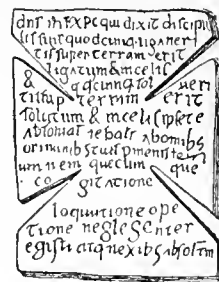 dns ihs xpc qui dixit discipu
lis suis quodcumq; ligaveri
tis super terram erit
ligatum & in celis
& qdcumq sol ueri
tis sup terram erit
solutum & in celis ipse te
rebald ab omnib;
criminib;
um quecum que
co gitatione
loquutione ope
tione negleGenter
egisti atq nexib; absol